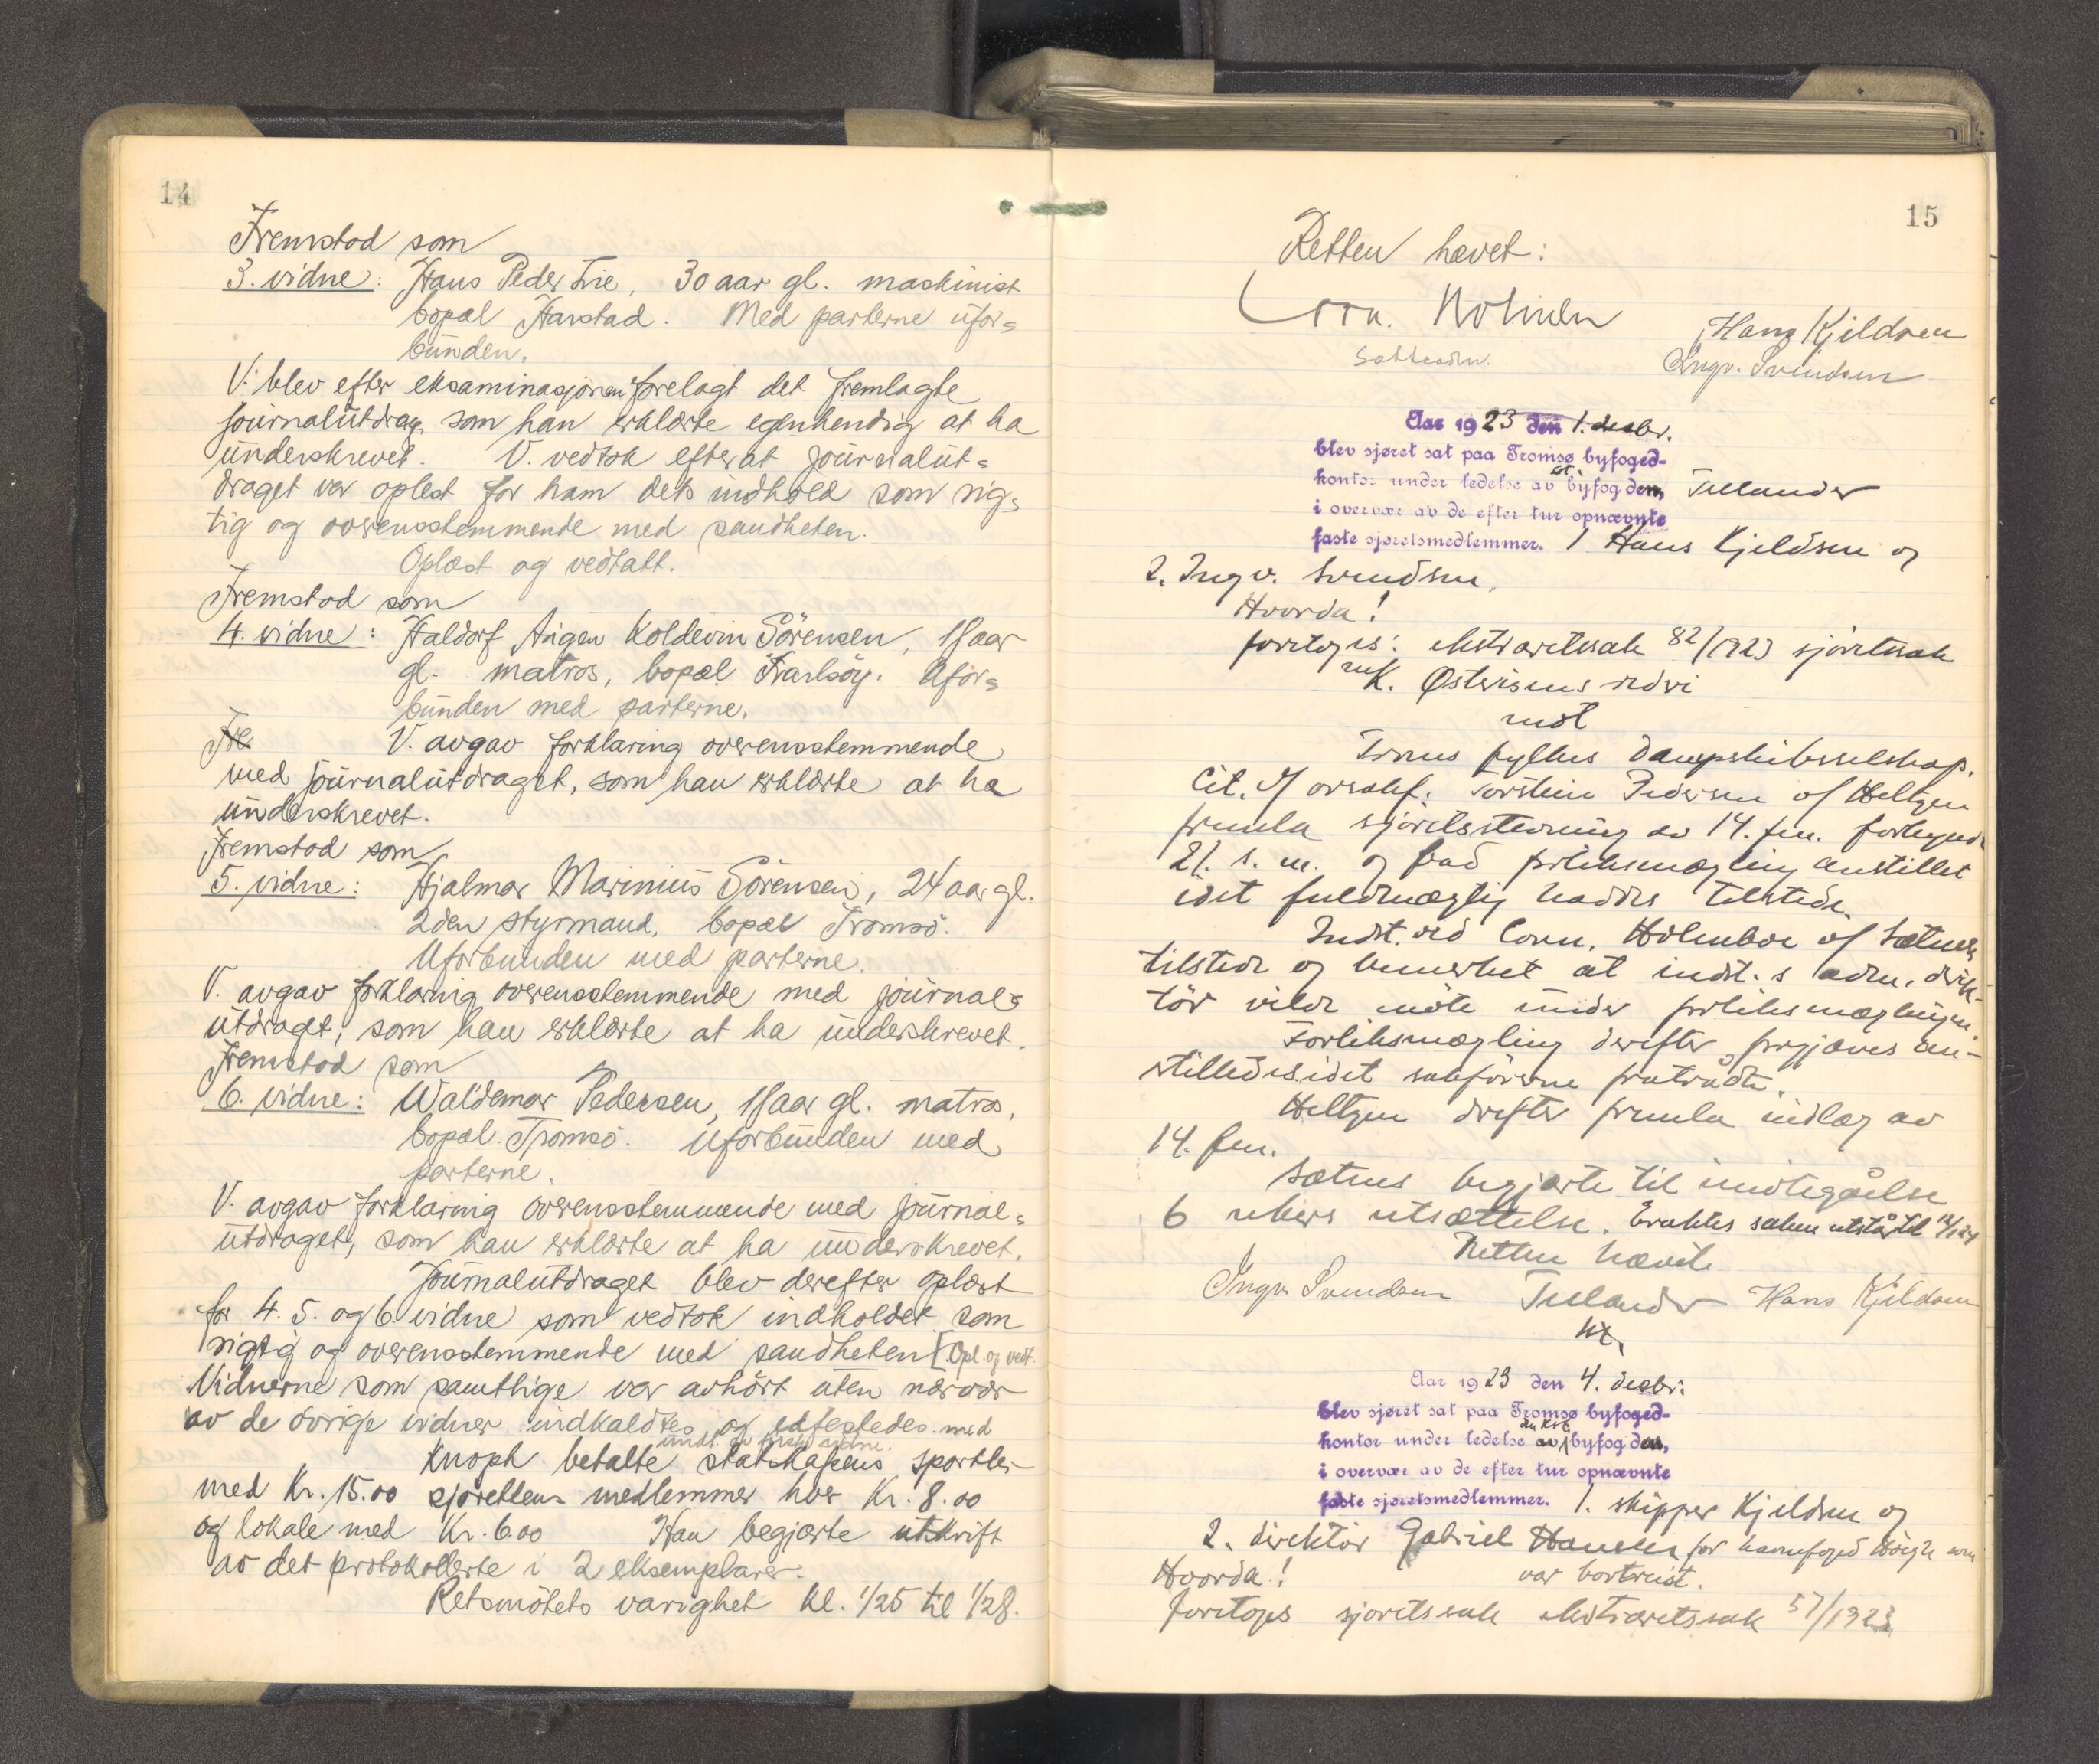 14
Fremstod som
3. vidne: Hans Peder Lie, 30 aar gl. maskinist
bopæl Harstad. Med parterne ufor=
bunden.
V. blev efter eksaminasjonen forelagt det fremlagte
journalutdrag som han erklærte egenhendig at ha
underskrevet. V. vedtok efterat journalut=
draget var oplest for ham dets indhold som rig=
tig og overensstemmende med sandheten.
Oplæst og vedtatt.
Fremstod som
4. vidne: Haldorf Angen Koldevin Sörensen, 18 aar
gl. matros, bopæl Karlsöy. Ufor=
bunden med parterne.
Fre V. avgav forklaring overensstemmende
med journalutdraget, som han erklærte at ha
underskrevet.
Fremstod som
5. vidne: Hjalmar Marinius Sörensen, 24 aar gl.
2den styrmand, bopæl Tromsö.
Uforbunden med parterne.
V. avgav forklaring overensstemmende med journal=
utdraget, som han erklærte at ha underskrevet.
Fremstod som
6. vidne: Waldemar Pedersen, 18 aar gl. matros,
bopæl Tromsö. Uforbunden med
parterne.
V. avgav forklaring overensstemmende med journal=
utdraget, som han erklærte at ha underskrevet.
Journalutdraget blev derefter oplæst
for 4. 5. og 6. vidne som vedtok indholdet som
rigtig og overensstemmende med sandheten [Opl. og vedt.
Vidnerne som samtlige var avhört uten nærvær
av de övrige vidner indkaldtes og edfestedes med
undt. av
Knoph betalte statskassens sportler
med Kr. 15.00 sjörettens medlemmer hver Kr. 8.00
og lokale med Kr. 6.00 Han begjærte utskrift
av det protokollerte i 2 eksemplarer.
Retsmötets varighet kl. 1/2 5 til 1/2 8.
15
Retten hævet:
Hans Kjeldsen
Ingv. Svendsen
Aar 1923 den 1. desbr.
blev sjøret sat paa Tromsø byfoged-
kontor under ledelse av byfogden, Tillander
i overvær av de efter tur opnævnte
faste sjøretsmedlemmer. 1 Hans Kjeldsen og
2. Ingv. Svendsen.
Hvorda!
foretoges: ekstraretssak 82/1923 sjöretssak
K. Østensens rederi
mot
Troms fylkes Dampskibsselskap.
Cit. v/ orsakf. Torstein Pedersen v/ Heltzen
fremla sjöretsstevning av 14. fm. forkynt
21. s. m. og bad forliksmægling anstillet
idet fuldmægtig haddes tilstede.
Indst. ved Corn. Holmboe v/ Sætnes
tilstede og bemerket at indst. s adm. direk-
tör vilde möte under forliksmæglingen.
Forliksmægling derefter forgjæves an-
stilledes idet sakförerne fratrådte.
Heltzen derefter fremla indlæg av
14. fm.
Sætnes begjærte til imötegåelse
6 ukers utsættelse. Eraktes saken utstår til
Retten hævet.
Ingv. Svendsen Tillander Hans Kjeldsen
Aar 1923 den 4. desbr.
blev sjøret sat paa Tromsø byfoged-
kontor under ledelse av byfogden,
i overvær av de efter tur opnævnte
faste sjøretsmedlemmer. 1. skipper Kjeldsen og
2. direktör Gabriel Hansen for havnefoged som
Hvorda! var bortreist.
foretoges sjöretssak ekstraretssak 57/1923